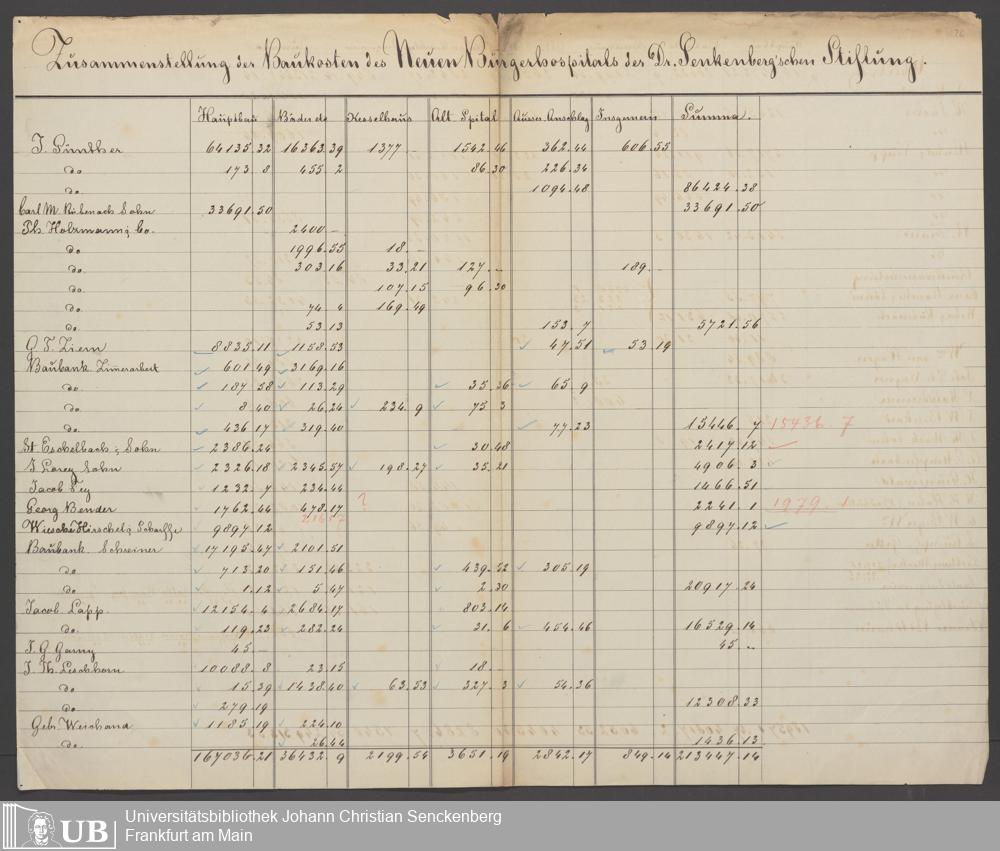 Zusammenstellung der Baukosten des Neuen Bürgerhospitals der Dr. Senkenberg'schen Stiftung.
Hauptbau Bäder do Kesselhaus Alt. Spital Ausser. Anschlag Insgemein Summa.
J. Günther 64135.32 16363.39 1377 – 1542.46 362.44 606.55
do 173.8 455.2 86.30 226.34
do. 1094.48 86424.38
Carl M. Sohn 33691.50 33691.50
Ph. Holzmann & Co. 2400 –
do 1996.55 18. –
do. 303.16 33.21 127. – 189. –
do. 107.15 96.30
do. 74.4 169.49
do. 53.13 153.7 5721.56
G. F. Ziem 8835.11 1158.53 47.51 53.19
Baubank Zimerarbeit 601.49 3169.16
do. 187.58 113.29 35.36 65.9
do. 8.40 26.24 234.9 75.3
do. 436.17 319.40 77.23 15446.7 15436.7
St. Eschelbach & Sohn 2386.24 30.48 2417.12
J. Lorey Sohn 2326.18 2345.57 198.27 35.21 4906.3
Jacob Fey 1232.7 234.44 1466.51
Georg Bender 1762.44 478.17 ? 2241.1 1979.1
Hirschel & Scharffe 9897.12 9897.12
Baubank Schreiner 17195.47 2101.51
do 713.20 151.46 439.22 305.19
do 1.12 5.47 2.30 20917.24
Jacob Lapp. 12154.4 2684.17 803.14
do. 119.23 282.24 31.6 454.46 16529.14
J. G. Garny 45. – 45. –
J. Th. Lischhorn 10088.8 23.15 18. –
do 15.39 1438.40 63.53 327.3 54.36
do 279.19 12308.33
Gebr. Weichand 1185.19 224.10
do. 26.44 1436.13
167036.21 36432.9 2199.54 3651.19 2842.17 849.14 213447.14
UB
Universitätsbibliothek Johann Christian Senckenberg
Frankfurt am Main